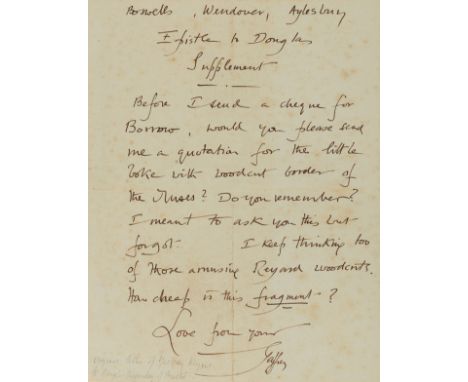 Boswells, Wendover, Aylesbury
Epistle to Douglas
Supplement
Before I send a cheque for
Borrow, would you please send
me a quotation for the little
boke with woodcut border of
the Muses? Do you remember?
I meant to ask you this but
forgot. I keep thinking too
of those amusing Reyard woodcuts.
How cheap is this fragment?
Love from your
Geoffrey
Original letter of Geoffrey Keynes